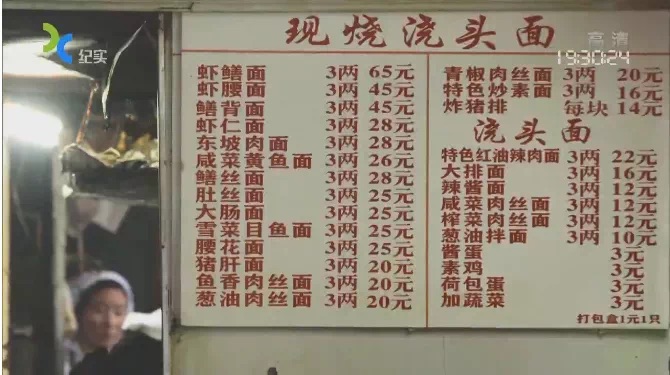 纪实
高清
19:30:24
现烧浇头面
虾鳝面 3两 65元
虾腰面 3两 45元
鳝背面 3两 45元
虾仁面 3两 28元
东坡肉面 3两 28元
咸菜黄鱼面 3两 26元
鳝丝面 3两 28元
肚丝面 3两 25元
大肠面 3两 25元
雪菜目鱼面 3两 25元
腰花面 3两 25元
猪肝面 3两 20元
鱼香肉丝面 3两 20元
葱油肉丝面 3两 20元
青椒肉丝面 3两 20元
特色炒素面 3两 16元
炸猪排 每块 14元
浇头面
特色红油辣肉面 3两 22元
大排面 3两 16元
辣酱面 3两 12元
咸菜肉丝面 3两 12元
榨菜肉丝面 3两 12元
葱油拌面 3两 10元
酱蛋 3元
素鸡 3元
荷包蛋 3元
加蔬菜 3元
打包盒1元1只